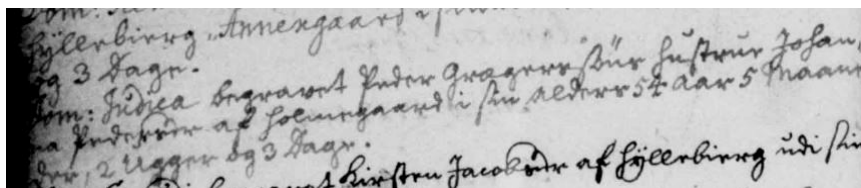 Hyllebierg Annexgaard i sin
og 3 Dage.
Dom: Judica begravet Peder Gregerssøns hustrue Johan,
na Pedersdr af Holmegaard i sin alders 54 Aar 5 Maane
der, 2 Ugger og 3 Dage.
Kirsten Jacobsdr af Hyllebierg udi sin